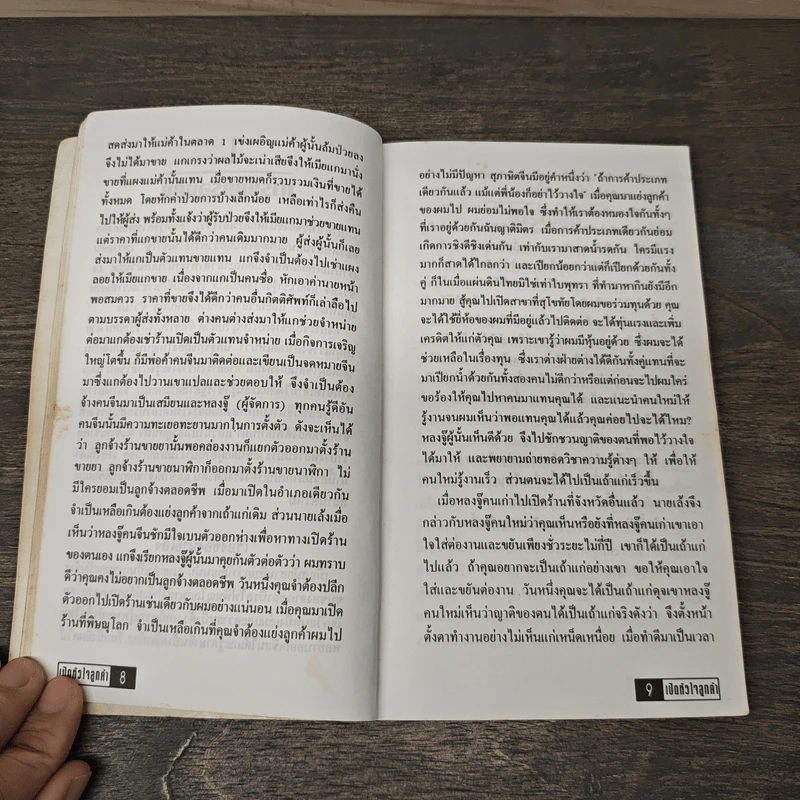 สดส่งมาให้แม่ค้าในตลาด 1 เข่งเผอิญแม่ค้าผู้นั้นล้มป่วยลง
จึงไม่ได้มาขาย แกเกรงว่าผลไม้จะเน่าเสียจึงให้เมียแกมานั่ง
ขายที่แผงแม่ค้านั้นแทน เมื่อขายหมดก็รวบรวมเงินที่ขายได้
ทั้งหมด โดยหักค่าป่วยการบ้างเล็กน้อย เหลือเท่าไรก็ส่งคืน
ไปให้ผู้ส่ง พร้อมทั้งแจ้งว่าผู้รับป่วยจึงให้เมียแกมาช่วยขายแทน
แต่ราคาที่แกขายนั้นได้ดีกว่าคนเดิมมากมาย ผู้ส่งผู้นั้นก็เลย
ส่งมาให้แกเป็นตัวแทนขายแทน แกจึงจำเป็นต้องไปเช่าแผง
ลอยให้เมียแกขาย เนื่องจากแกเป็นคนซื่อ หักเอาค่านายหน้า
พอสมควร ราคาที่ขายจึงได้ดีกว่าคนอื่นกิตติศัพท์ก็เล่าลือไป
ตามบรรดาผู้ส่งทั้งหลาย ต่างคนต่างส่งมาให้แกช่วยจำหน่าย
ต่อมาแกต้องเช่าร้านเปิดเป็นตัวแทนจำหน่าย เมื่อกิจการเจริญ
ใหญ่โตขึ้น ก็มีพ่อค้าคนจีนมาติดต่อและเขียนเป็นจดหมายจีน
มาซึ่งแกต้องไปวานเขาแปลและช่วยตอบให้ จึงจำเป็นต้อง
จ้างคนจีนมาเป็นเสมียนและหลงจู๊ (ผู้จัดการ) ทุกคนรู้ดีอัน
คนจีนนั้นมีความทะเยอทะยานมากในการตั้งตัว ดังจะเห็นได้
ว่า ลูกจ้างร้านขายยานั้นพอคล่องงานก็แยกตัวออกมาตั้งร้าน
ขายยา ลูกจ้างร้านขายนาฬิกาก็ออกมาตั้งร้านขายนาฬิกา ไม่
มีใครยอมเป็นลูกจ้างตลอดชีพ เมื่อมาเปิดในอำเภอเดียวกัน
จำเป็นเหลือเกินต้องแย่งลูกค้าจากเถ้าแก่เดิม ส่วนนายเส้งเมื่อ
เห็นว่าหลงจู๊คนจีนชักมีใจเบนตัวออกห่างเพื่อหาทางเปิดร้าน
ของตนเอง แกจึงเรียกหลงจู๊ผู้นั้นมาคุยกันตัวต่อตัวว่า ผมทราบ
ดีว่าคุณคงไม่อยากเป็นลูกจ้างตลอดชีพ วันหนึ่งคุณจำต้องปลีก
ตัวออกไปเปิดร้านเช่นเดียวกับผมอย่างแน่นอน เมื่อคุณมาเปิด
ร้านที่พิษณุโลก จำเป็นเหลือเกินที่คุณจำต้องแย่งลูกค้าผมไป
เปิดหัวใจลูกค้า 8
อย่างไม่มีปัญหา สุภาษิตจีนมีอยู่คำหนึ่งว่า "ถ้าการค้าประเภท
เดียวกันแล้ว แม้แต่พี่น้องก็อย่าไว้วางใจ" เมื่อคุณมาแย่งลูกค้า
ของผมไป ผมย่อมไม่พอใจ ซึ่งทำให้เราต้องหมองใจกันทั้งๆ
ที่เราอยู่ด้วยกันฉันญาติมิตร เมื่อการค้าประเภทเดียวกันย่อม
เกิดการชิงดีชิงเด่นกัน เท่ากับเรามาสาดน้ำรดกัน ใครมีแรง
มากก็สาดได้ไกลกว่า และเปียกน้อยกว่าแต่ก็เปียกด้วยกันทั้ง
คู่ ก็ในเมื่อแผ่นดินไทยมิใช่เท่าใบพุทรา ที่ทำมาหากินยังมีอีก
มากมาย สู้คุณไปเปิดสาขาที่สุโขทัยโดยผมขอร่วมทุนด้วย คุณ
จะได้ใช้ยี่ห้อของผมที่มีอยู่แล้วไปติดต่อ จะได้ทุ่นแรงและเพิ่ม
เครดิตให้แก่ตัวคุณ เพราะเขารู้ว่าผมมีหุ้นอยู่ด้วย ซึ่งผมจะได้
ช่วยเหลือในเรื่องทุน ซึ่งเราต่างฝ่ายต่างได้ดีกันทั้งคู่แทนที่จะ
มาเปียกน้ำด้วยกันทั้งสองคนไม่ดีกว่าหรือแต่ก่อนจะไปผมใคร่
ขอร้องให้คุณไปหาคนมาแทนคุณได้ และแนะนำคนใหม่ให้
รู้งานจนผมเห็นว่าพอแทนคุณได้แล้วคุณค่อยไปจะได้ไหม?
หลงจู๊ผู้นั้นเห็นดีด้วย จึงไปชักชวนญาติของตนที่พอไว้วางใจ
ได้มาให้ และพยายามถ่ายทอดวิชาความรู้ต่างๆ ให้ เพื่อให้
คนใหม่รู้งานเร็ว ส่วนตนจะได้ไปเป็นเถ้าแก่เร็วขึ้น
เมื่อหลงจู๊คนเก่าไปเปิดร้านที่จังหวัดอื่นแล้ว นายเส้งจึง
กล่าวกับหลงจู๊คนใหม่ว่าคุณเห็นหรือยังที่หลงจู๊คนเก่าเขาเอา
ใจใส่ต่องานและขยันเพียงชั่วระยะไม่กี่ปี เขาก็ได้เป็นเถ้าแก่
ไปแล้ว ถ้าคุณอยากจะเป็นเถ้าแก่อย่างเขา ขอให้คุณเอาใจ
ใส่และขยันต่องาน วันหนึ่งคุณจะได้เป็นเถ้าแก่ดุจเขาหลงจู๊
คนใหม่เห็นว่าญาติของตนได้เป็นเถ้าแก่จริงดังว่า จึงตั้งหน้า
ตั้งตาทำงานอย่างไม่เห็นแก่เหน็ดเหนื่อย เมื่อทำดีมาเป็นเวลา
9 เปิดหัวใจลูกค้า